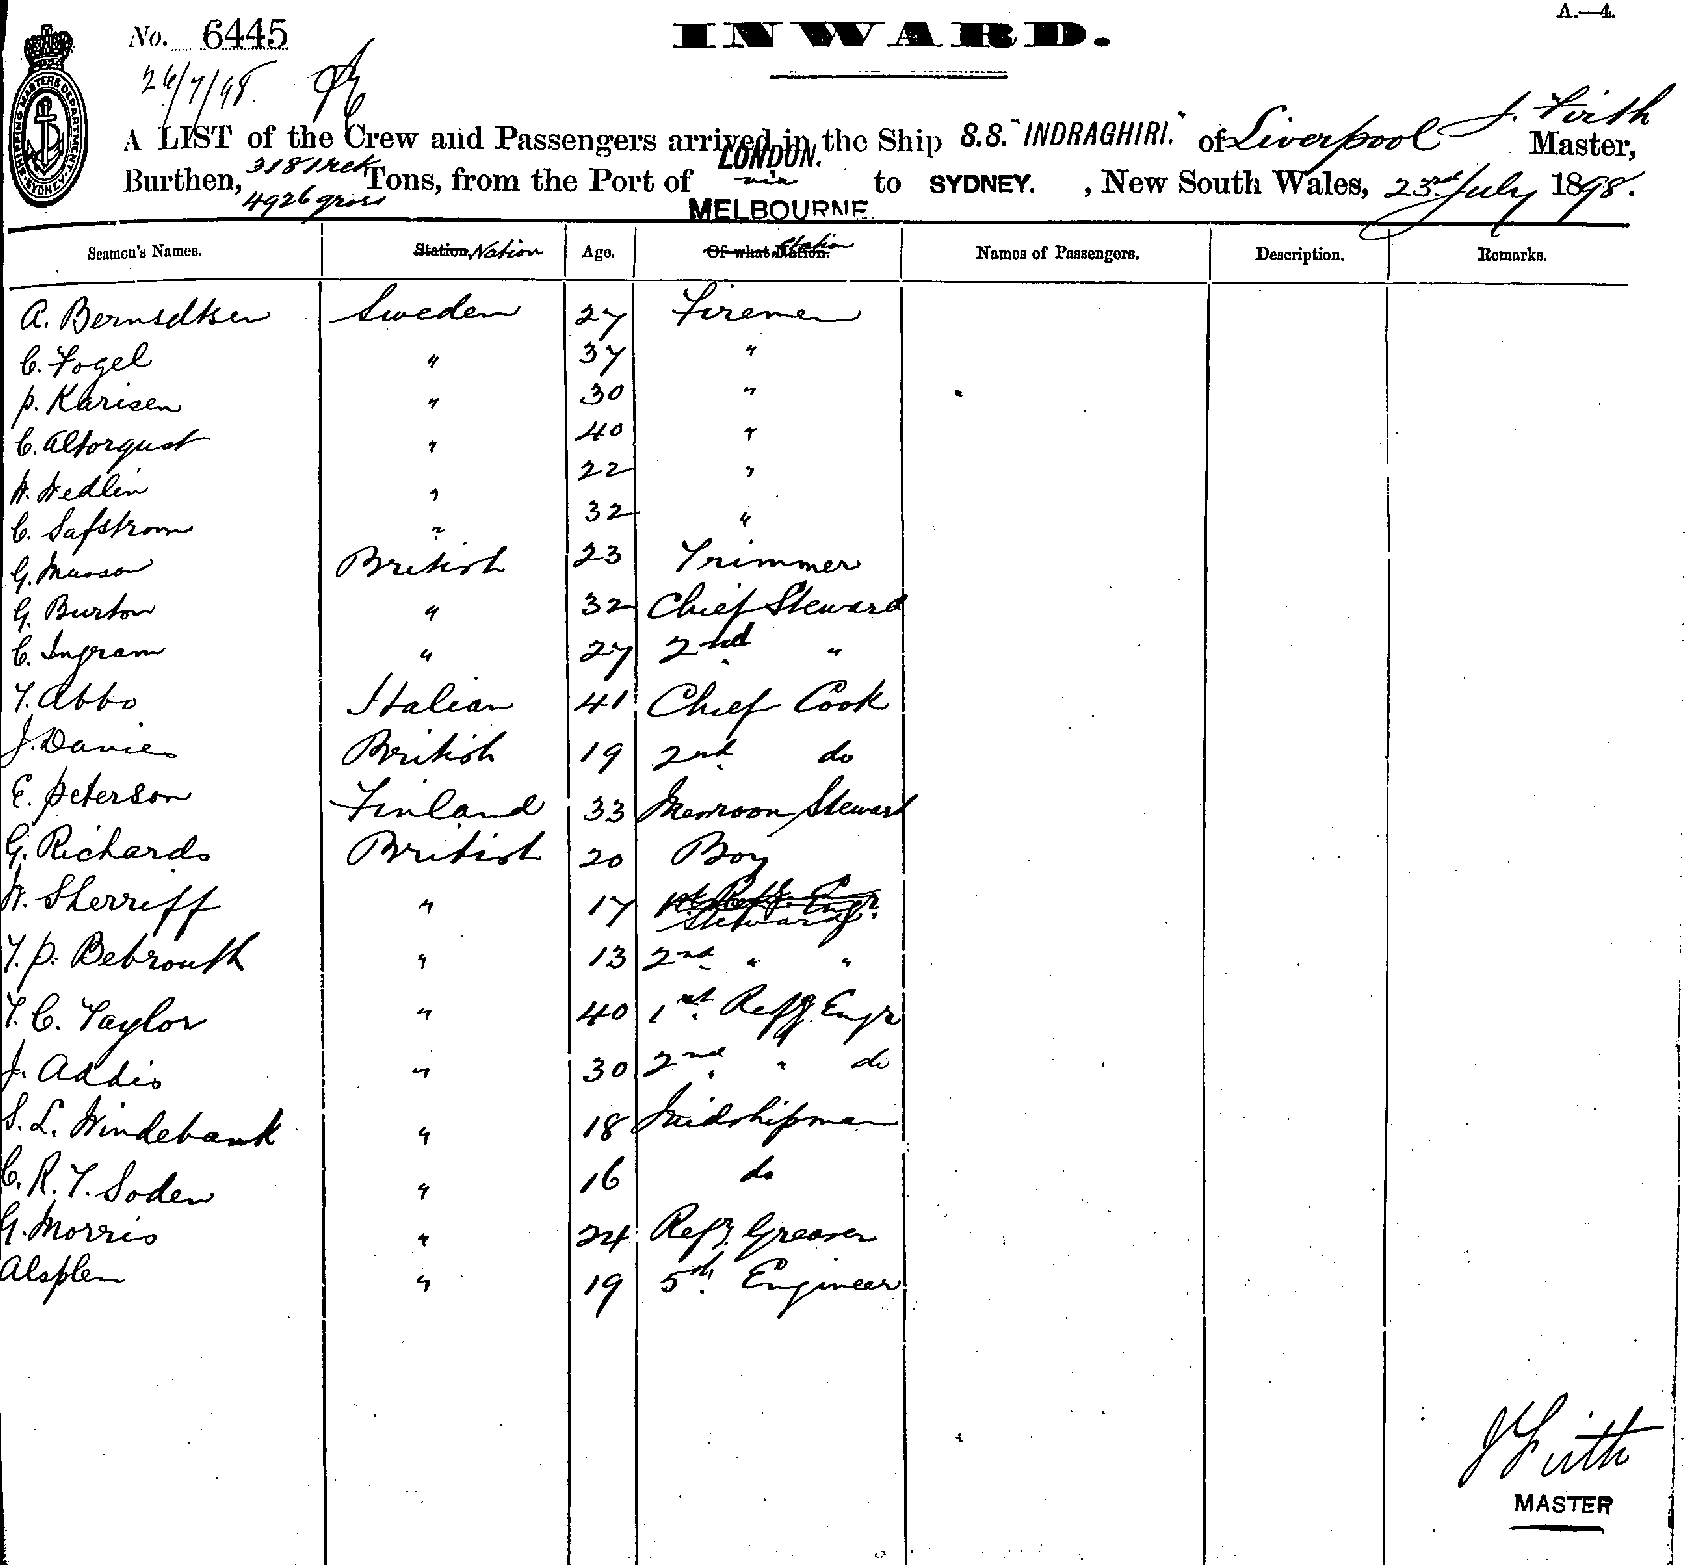 A.—4.
No. 6445
INWARD.
26/7/98.
SHIPPING MASTERS DEPARTMENT SYDNEY
A LIST of the Crew and Passengers arrived in the Ship S.S. "INDRAGHIRI." of Liverpool J. Firth Master,
Burthen, 3181 net 4926 gross Tons, from the Port of LONDON. via MELBOURNE. to SYDNEY. , New South Wales, 23rd July 1898.
Seamen's Names. Station, Nation Age. Of what Nation. Station Names of Passengers. Description. Remarks.
A. Berndtsen Sweden 27 Firemen
C. Fogel " 37 "
P. Karisen " 30 "
C. Altorqust " 40 "
W. Wedlin " 22 "
C. Safstrom " 32 "
G. Musson British 23 Trimmer
G. Burton " 32 Chief Steward
C. Ingram " 27 2nd "
T. Abbo Italian 41 Chief Cook
J. Davies British 19 2nd do
E. Peterson Finland 33 Messroom Steward
G. Richards British 20 Boy
W. Sherriff " 17 1st Refg. Engr. Steward
T. P. Bebrouth " 13 2nd " "
T. C. Taylor " 40 1st Refg Engr
J. Addis " 30 2nd " do
S. L. Windebank " 18 Midshipman
C. R. T. Soden " 16 do
G. Morris " 24 Refg. Greaser
Alsplen " 19 5th Engineer
J Firth
MASTER